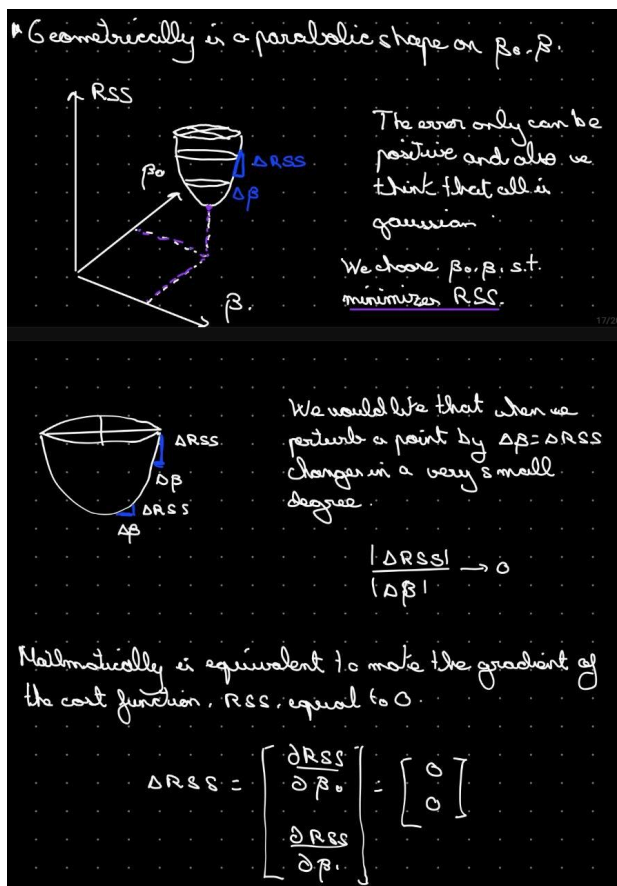 * Geometrically is a parabolic shape on β₀, β₁
RSS
β₀
ΔRSS
Δβ
β₁
The error only can be
positive and also we
think that all is
gaussian.
We choose β₀, β₁ s.t.
minimizes RSS.
ΔRSS
Δβ
ΔRSS
Δβ
We would like that when we
perturb a point by Δβ = ΔRSS
changes in a very small
degree.
|ΔRSS|
|Δβ| → 0
Mathmatically is equivalent to make the gradient of
the cost function, RSS, equal to 0.
ΔRSS = [ ∂RSS/∂β₀ ∂RSS/∂β₁ ] = [ 0 0 ]